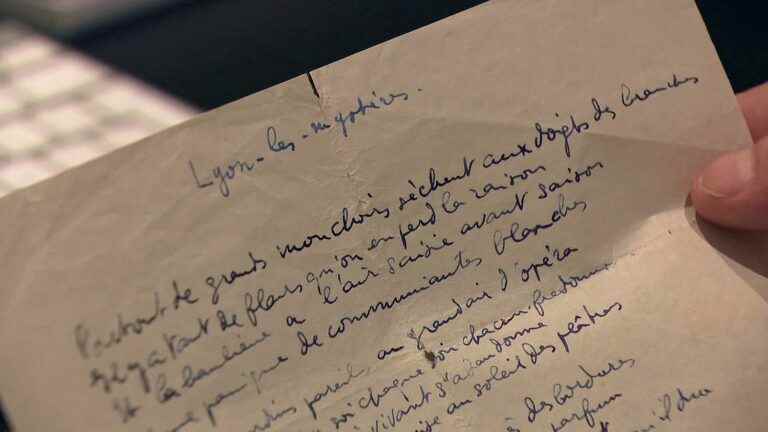 Lyon-les-mystères.
Partout de grands mouchoirs sèchent aux doigts des branches
Il y a tant de fleurs qu'on en perd la raison
Et la banlieue a l'air saisie avant saison
panique de communiantes blanches
jardins pareils au grand air d'opéra
soi chaque soir chacun fredonne
vivant s'abandonne
au soleil des plâtres
des bordures
parfum